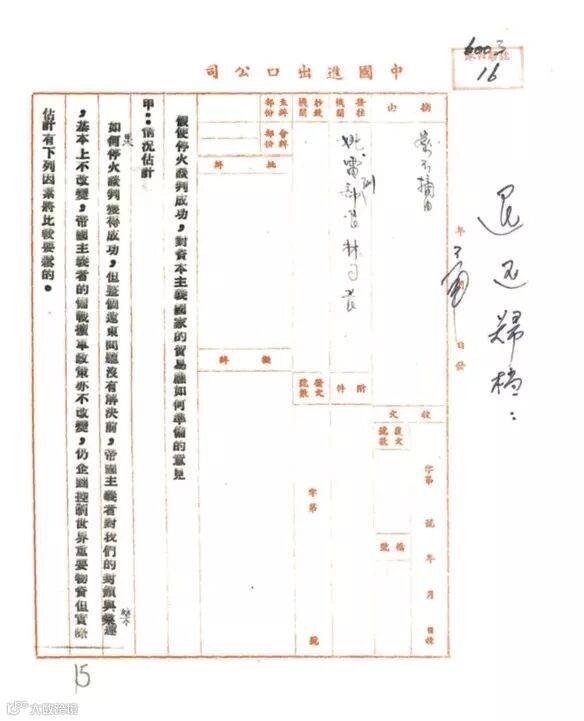 中國進出口公司
16
退還歸檔：
年
日發
摘由
案不摘由
發往機關
抄致機關
主辦部份
會辦部份
批辦
擬辦
附件
發文號數
字第
號
收文
收文號數
檔號
字第
號
年
月
假使停火談判成功，對資本主義國家的貿易應如何準備的意見
甲：情況估計
如何停火談判獲得成功，但整個遠東問題沒有解決前，帝國主義者對我們的封鎖與禁運
果
，基本上不改變，帝國主義者的備戰擴軍政策亦不改變，仍企圖控制世界重要物資但實際
估計有下列因素將比較要鬆的。
15
大數跨境